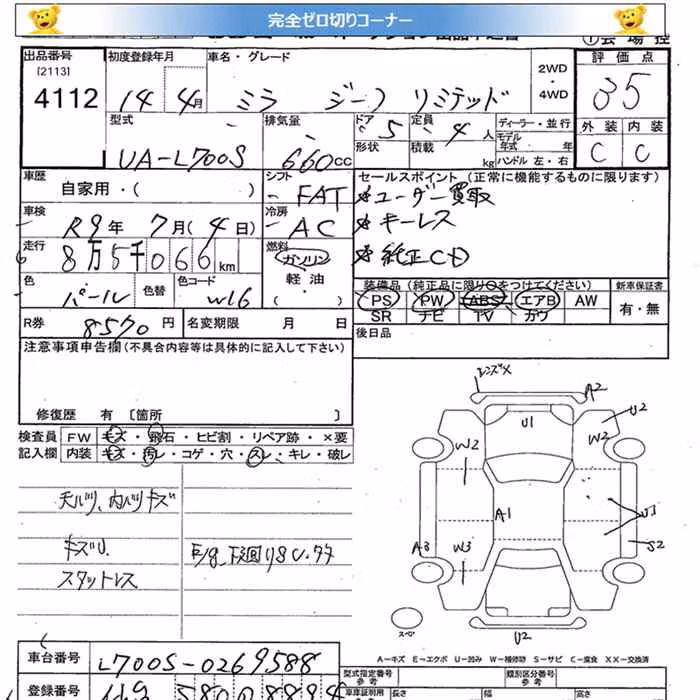 完全ゼロ切りコーナー
出品番号 初度登録年月 車名・グレード 2WD ・4WD 評価点
[2113]
4112 14年 4月 ミラ ジーノ リミテッド 35
型式 排気量 ドア 定員 ディーラー・並行 外装 内装
UA-L700S 660cc 5 4人 モデル年式 年 C C
形状 積載 kg ハンドル 左・右
車歴 自家用・( ) シフト FAT セールスポイント(正常に機能するものに限ります)
車検 R9年 7月(4日) 冷房 AC ★ユーザー買取
走行 8万5千066km 燃料 ガソリン ★キーレス
軽油 ( ) ★純正CD
色 パール 色替 色コード W16 装備品(純正品に限り○をつけてください) 新車保証書
PS PW ABS エアB AW 有・無
SR ナビ TV カワ
R券 8570円 名変期限 月 日 後日品
注意事項申告欄(不具合内容等は具体的に記入して下さい)
修復歴 有〔箇所 〕
検査員 FW キズ・飛石・ヒビ割・リペア跡・×要
記入欄 内装 キズ・汚レ・コゲ・穴・スレ・キレ・破レ
キズU.
スタットレス
レンズX
A2
U1
U2
W2 W2
A1
U1
A3 W3 S2
スペア
U2
A−キズ E−エクボ U−凹み W−補修跡 S−サビ C−腐食 XX−交換済
車台番号 L700S-0269588 型式指定番号 類別区分番号
参考 参考
登録番号 長さ 幅 高さ